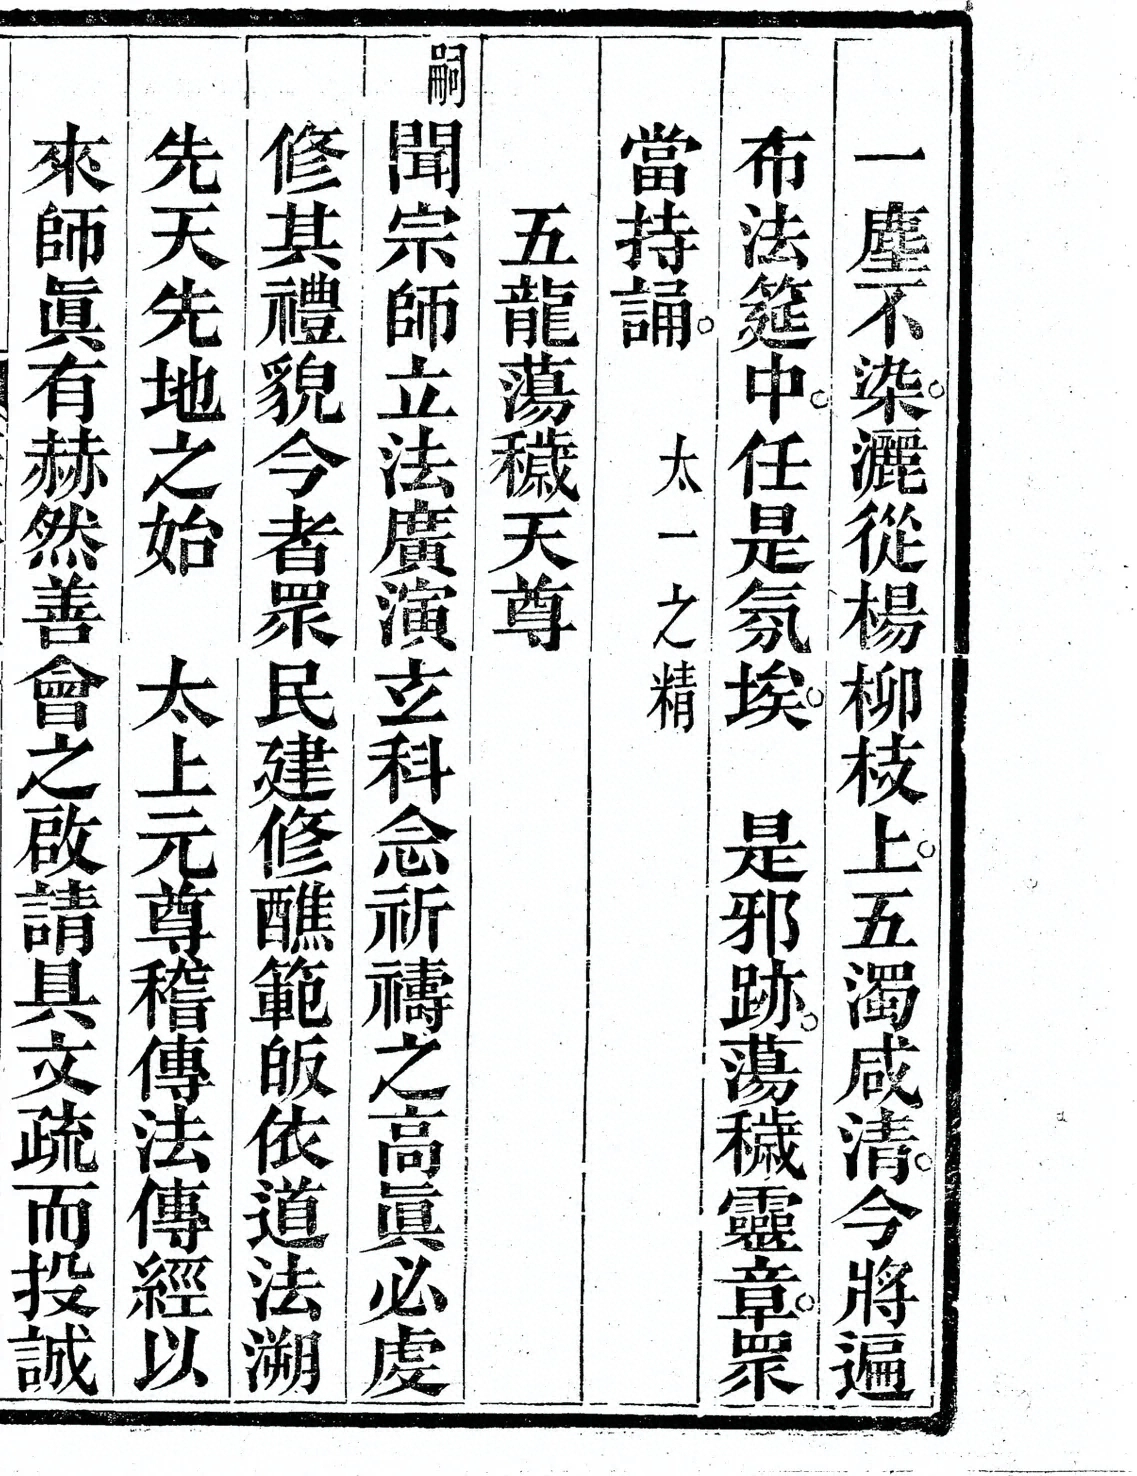 一塵不染。灑從楊柳枝上。五濁咸清。今將遍
布法筵中。任是氛埃。 是邪跡。蕩穢靈章。眾
當持誦。 太一之精
五龍蕩穢天尊
嗣 聞宗師立法廣演玄科念祈禱之高眞必虔
修其禮貌今者眾民建修醮範皈依道法溯
先天先地之始 太上元尊稽傳法傳經以
來師眞有赫然善會之啟請具文疏而投誠